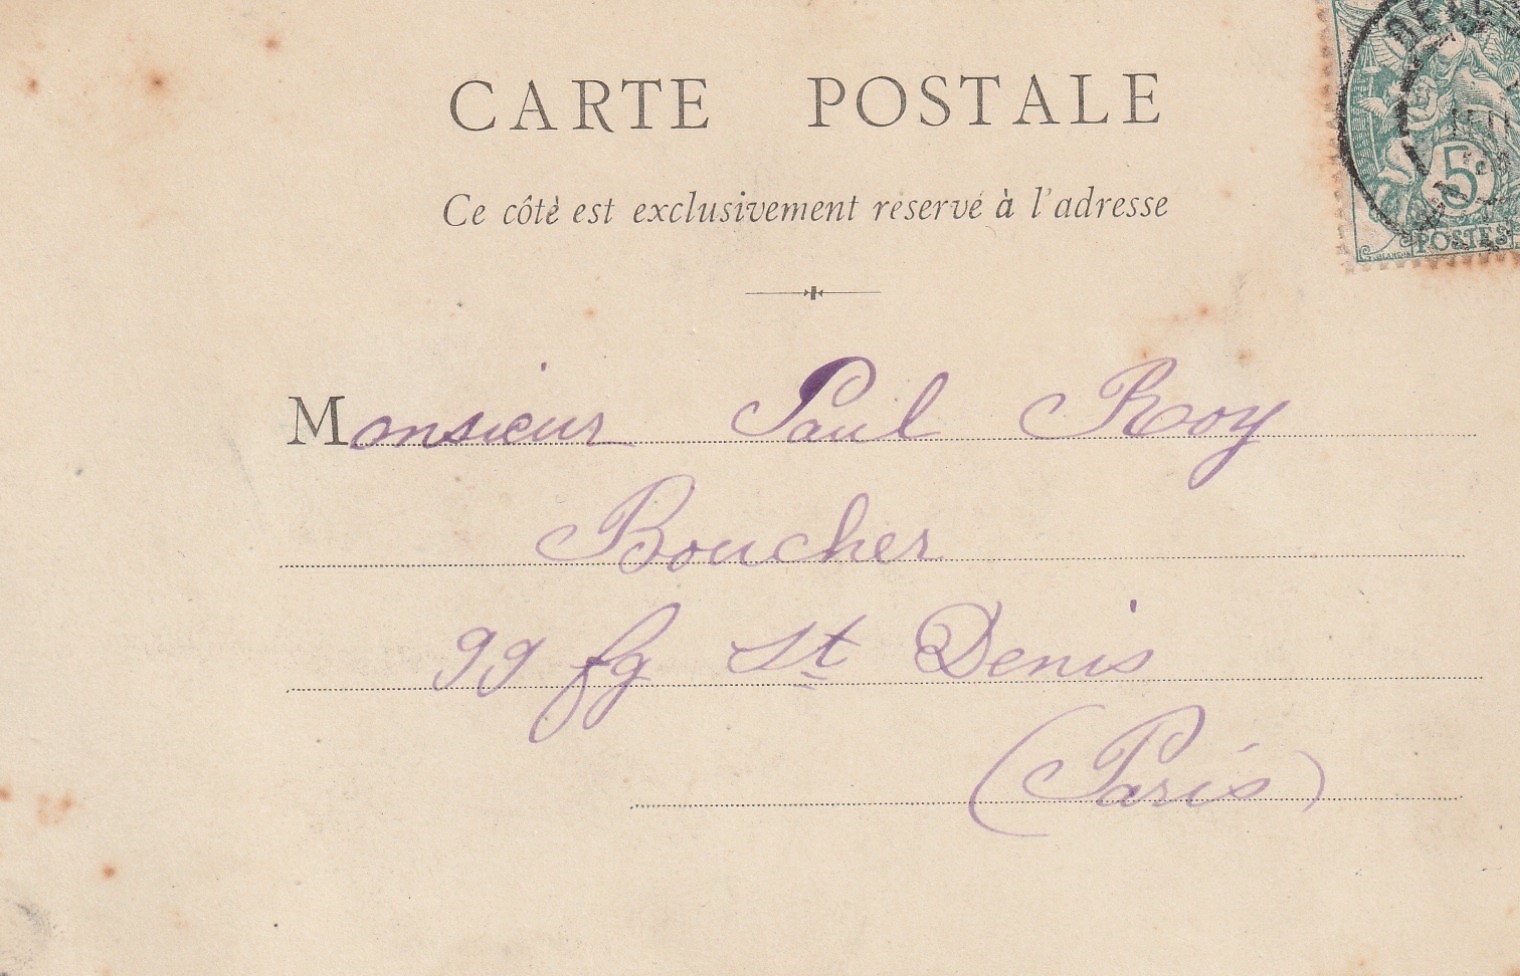 CARTE POSTALE
Ce côté est exclusivement réservé à l'adresse
5
POSTES
Monsieur Paul Roy
Boucher
99 fg St Denis
(Paris)